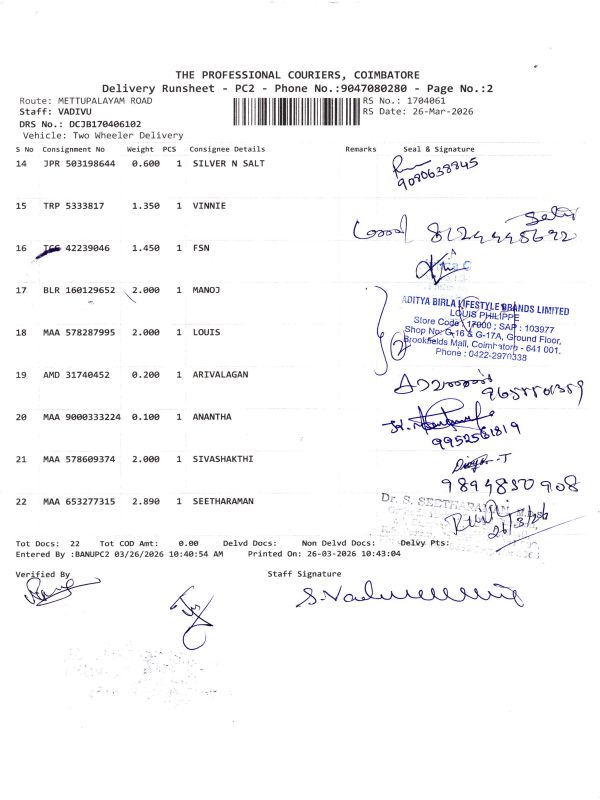 THE PROFESSIONAL COURIERS, COIMBATORE
Delivery Runsheet - PC2 - Phone No.:9047080280 - Page No.:2
Route: METTUPALAYAM ROAD
RS No.: 1704061
Staff: VADIVU
RS Date: 26-Mar-2026
DRS No.: DCJB170406102
Vehicle: Two Wheeler Delivery
S No Consignment No Weight PCS Consignee Details Remarks Seal & Signature
14 JPR 503198644 0.600 1 SILVER N SALT
9080638845
15 TRP 5333817 1.350 1 VINNIE
8124445692
16 42239046 1.450 1 FSN
17 BLR 160129652 2.000 1 MANOJ
ADITYA BIRLA LIFESTYLE BRANDS LIMITED
LOUIS PHILIPPE
Store Code : 17000 ; SAP : 103977
Shop No: G-16 & G-17A, Ground Floor,
Brookfields Mall, Coimbatore - 641 001.
Phone : 0422-2970338
18 MAA 578287995 2.000 1 LOUIS
2
19 AMD 31740452 0.200 1 ARIVALAGAN
20 MAA 9000333224 0.100 1 ANANTHA
9952561819
21 MAA 578609374 2.000 1 SIVASHAKTHI
9894850908
22 MAA 653277315 2.890 1 SEETHARAMAN
Dr. S. SEETHARAMAN
26/3/26
Tot Docs: 22 Tot COD Amt: 0.00 Delvd Docs: Non Delvd Docs: Delvy Pts:
Entered By :BANUPC2 03/26/2026 10:40:54 AM Printed On: 26-03-2026 10:43:04
Verified By
Staff Signature